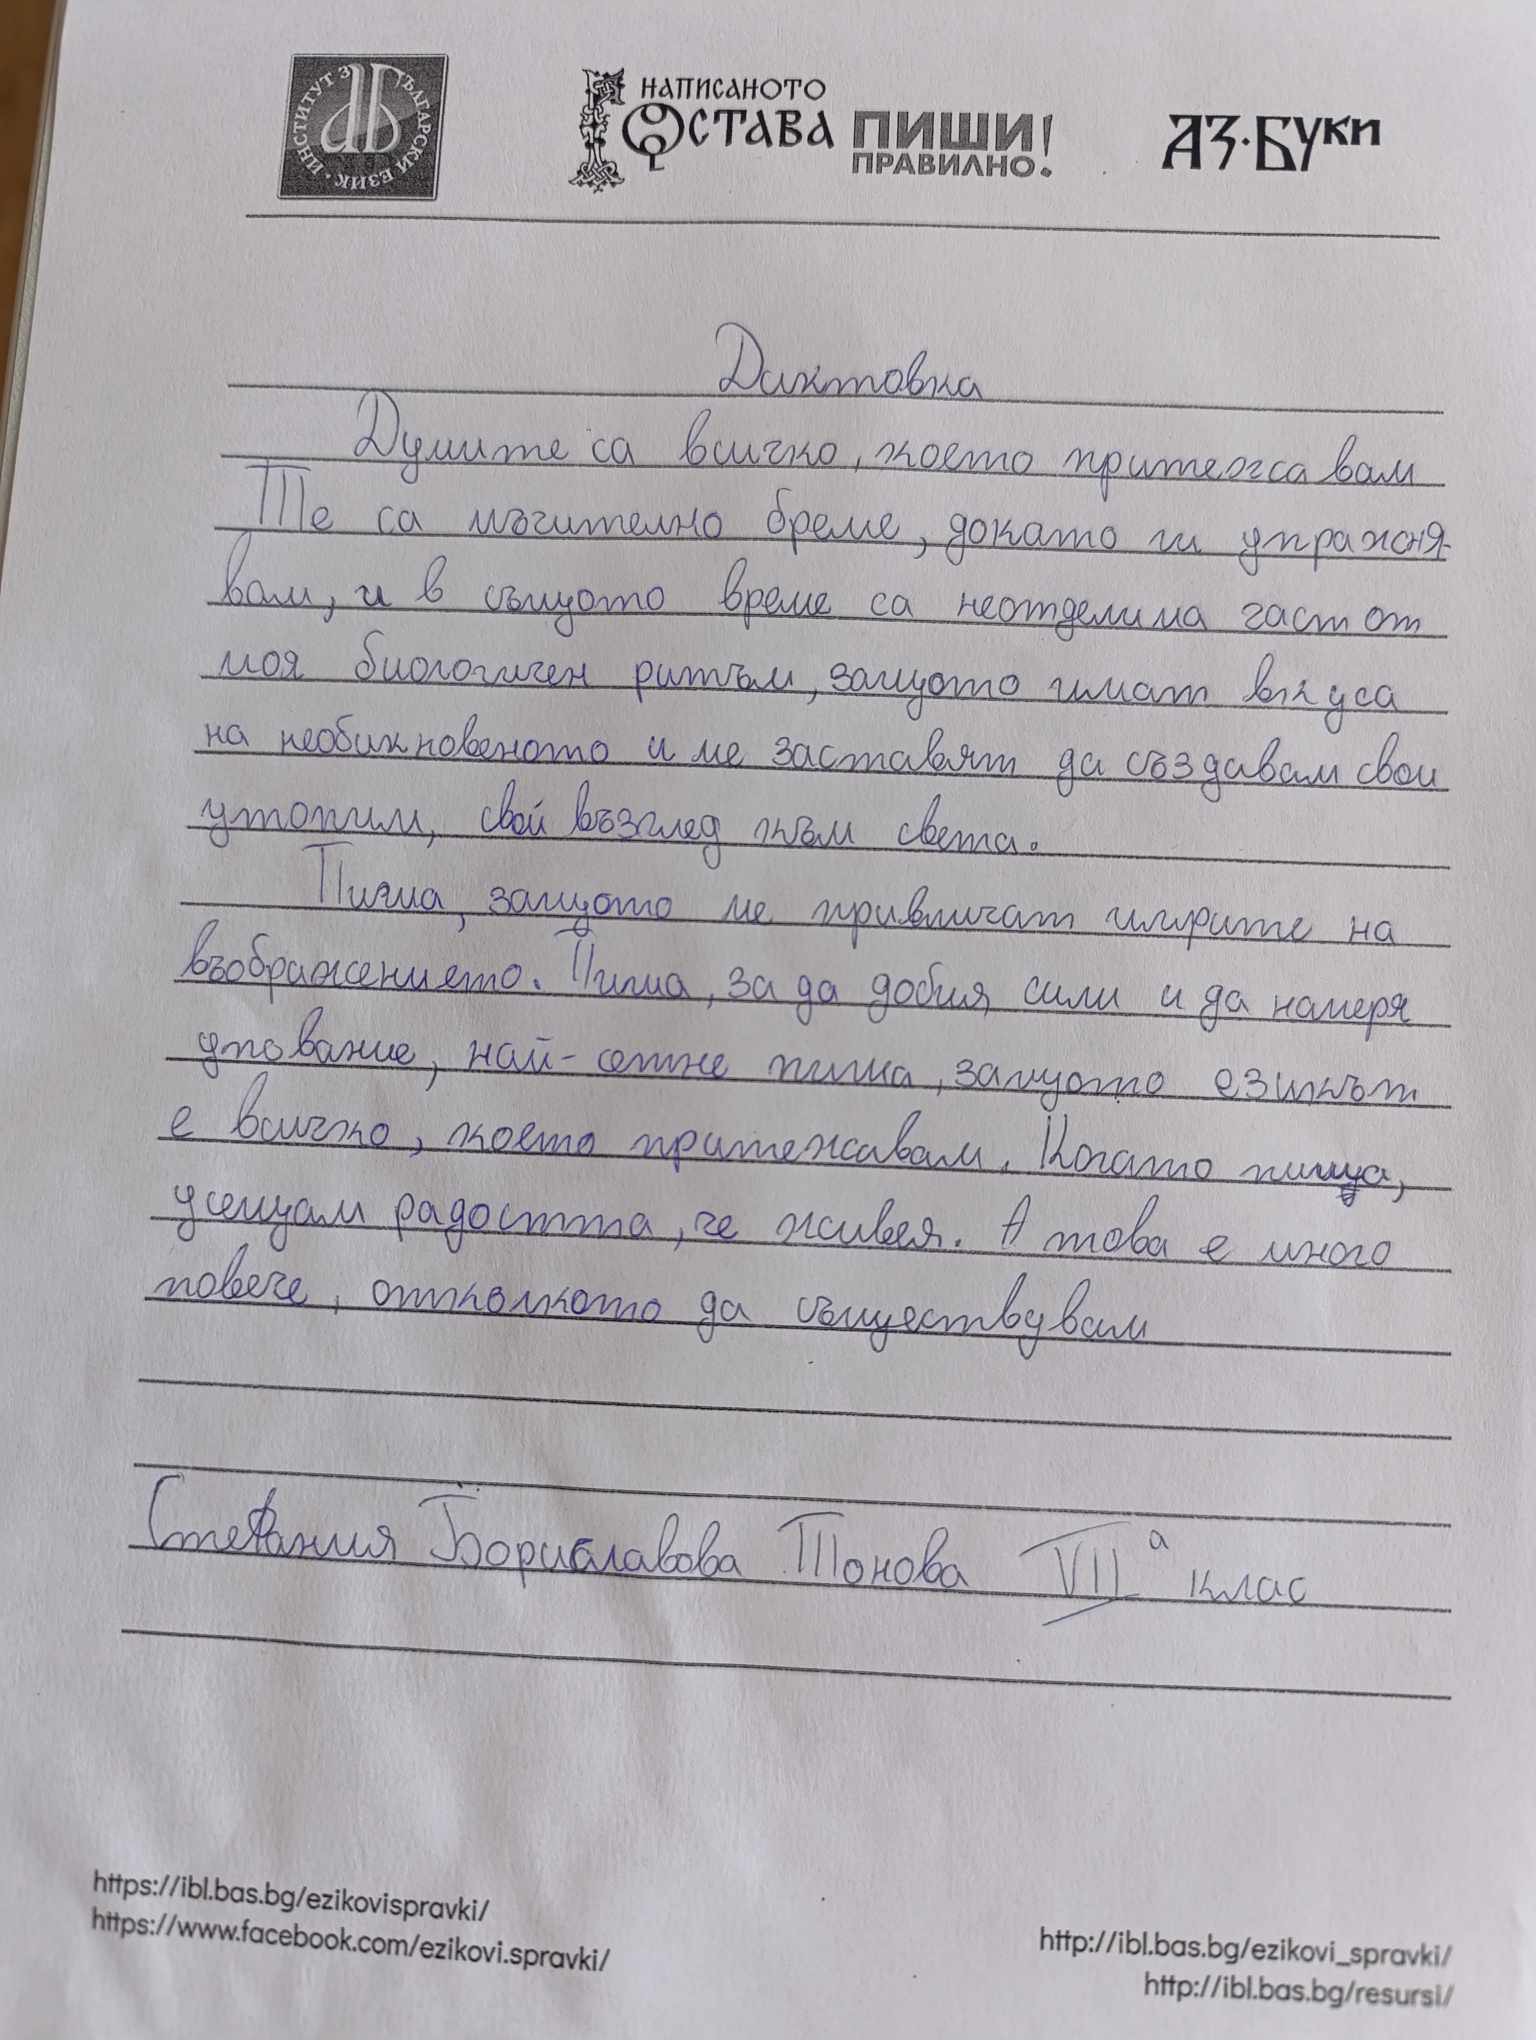 ИНСТИТУТ ЗА БЪЛГАРСКИ ЕЗИК
НАПИСАНОТО
ОСТАВА
ПИШИ
ПРАВИЛНО!
АЗ·БУКИ
Диктовка
Думите са всичко, което притежавам
Те са мъчително бреме, докато ги упражня-
вам, и в същото време са неотделима част от
моя биологичен ритъм, защото имат вкуса
на необикновеното и ме заставят да създавам свои
утопии, свой възглед към света.
Пиша, защото ме привличат игрите на
въображението. Пиша, за да добия сили и да намеря
упование, най-сетне пиша, защото езикът
е всичко, което притежавам. Когато пиша,
усещам радостта, че живея. А това е много
повече, отколкото да съществувам
Стефания Бориславова Тонова VII а клас
https://ibl.bas.bg/ezikovispravki/
https://www.facebook.com/ezikovi.spravki/
http://ibl.bas.bg/ezikovi_spravki/
http://ibl.bas.bg/resursi/